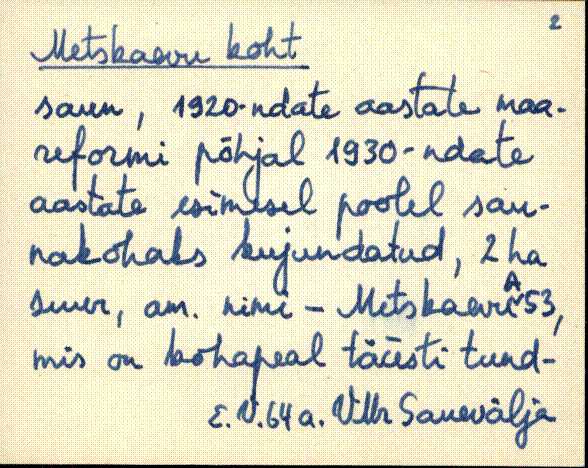 2
Metskaevu koht
saun, 1920-ndate aastate maa-
reformi põhjal 1930-ndate
aastate esimesel poolel sau-
nakohaks kujundatud, 2 ha
suur, am. nimi – Metskaevu A 53,
mis on kohapeal täiesti tund-
E. V. 64 a. Villr Sauevälja